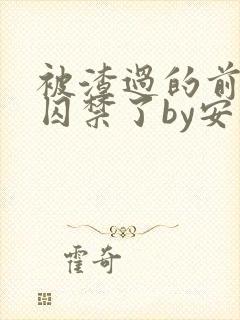 被渣过的前
囚禁了by安
霍奇